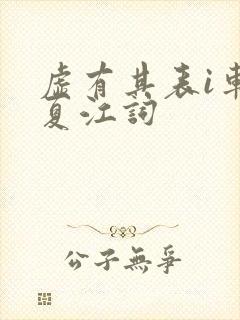 虚有其表i車
夏江詞
公子無爭